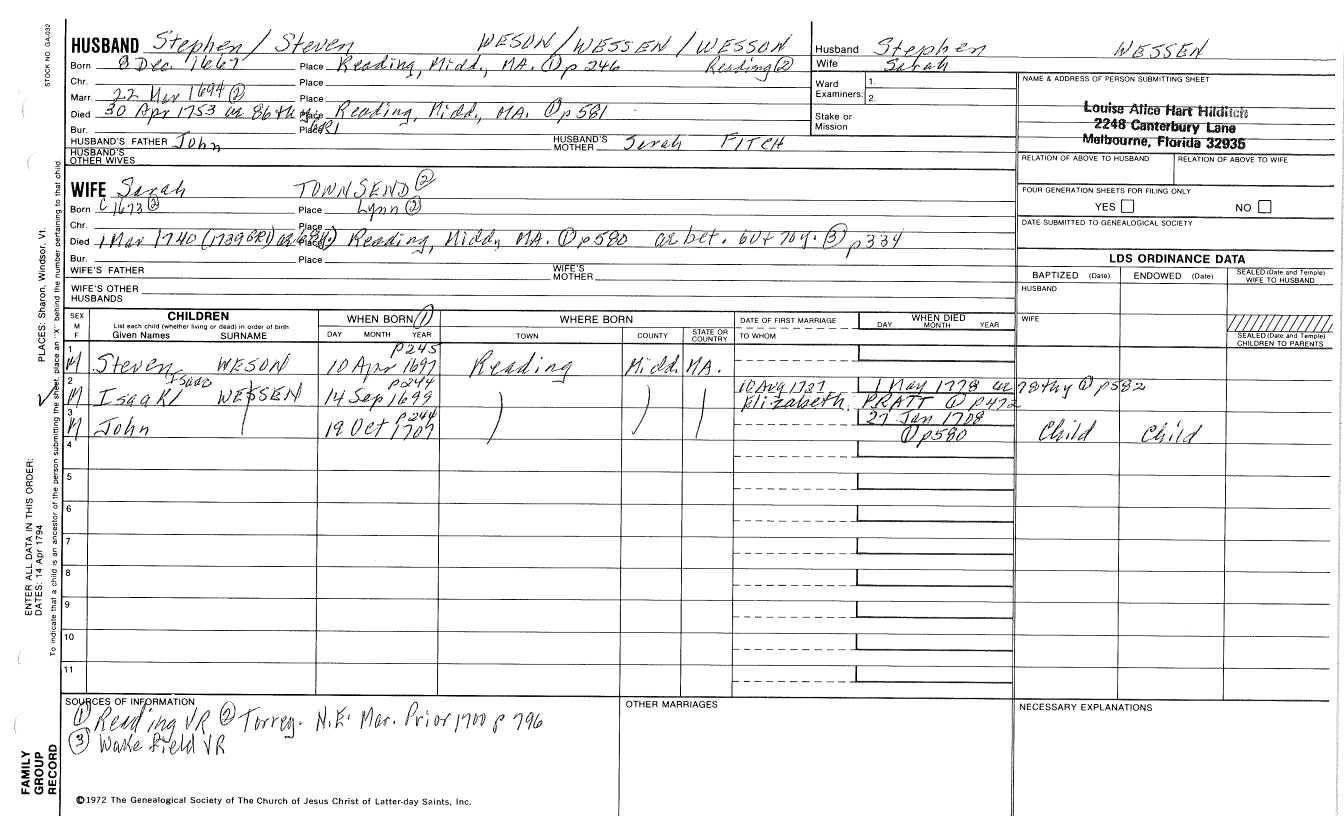 STOCK NO. GA-032
HUSBAND Stephen / Steven WESON / WESSEN / WESSON
Born 8 Dec. 1667 Place Reading, Midd, MA. ① p 246 Reading ②
Chr. Place
Marr. 22 Mar 1694 ② Place
Died 30 Apr 1753 ae 86th y. Place Reading, Midd, MA. ① p 581
Bur. Place GR1
HUSBAND'S FATHER John HUSBAND'S MOTHER Sarah FITCH
HUSBAND'S OTHER WIVES
Husband Stephen WESSEN
Wife Sarah
Ward Examiners: 1.
2.
Stake or Mission
NAME & ADDRESS OF PERSON SUBMITTING SHEET
Louise Alice Hart Hilditch
2248 Canterbury Lane
Melbourne, Florida 32935
RELATION OF ABOVE TO HUSBAND RELATION OF ABOVE TO WIFE
FOUR GENERATION SHEETS FOR FILING ONLY
YES NO
DATE SUBMITTED TO GENEALOGICAL SOCIETY
WIFE Sarah TOWNSEND ②
Born c 1673 ② Place Lynn ②
Chr. Place
Died 1 Mar 1740 (1739 GR1) ae Place Reading, Midd, MA. ① p 580 ae bet. 60 + 70 y. ③ p 334
Bur. Place
WIFE'S FATHER WIFE'S MOTHER
WIFE'S OTHER HUSBANDS
LDS ORDINANCE DATA
BAPTIZED (Date) ENDOWED (Date) SEALED (Date and Temple) WIFE TO HUSBAND
HUSBAND
WIFE
SEALED (Date and Temple) CHILDREN TO PARENTS
SEX M F CHILDREN List each child (whether living or dead) in order of birth Given Names SURNAME
WHEN BORN ① DAY MONTH YEAR
WHERE BORN TOWN COUNTY STATE OR COUNTRY
DATE OF FIRST MARRIAGE TO WHOM
WHEN DIED DAY MONTH YEAR
1 M Steven WESON 10 Apr 1697 p 245 Reading Midd. MA.
2 M Isaak / Isaac WESSEN 14 Sep 1699 p 244 10 Aug 1737 1 May 1778 ae 78th y ① p 582
Elizabeth PRATT ① p 472
3 M John 19 Oct 1707 p 244 27 Jan 1708 ① p 580 Child Child
4
5
6
7
8
9
10
11
SOURCES OF INFORMATION
① Reading VR ② Torrey. N.E. Mar. Prior 1700 p 796
③ Wakefield VR
OTHER MARRIAGES
NECESSARY EXPLANATIONS
©1972 The Genealogical Society of The Church of Jesus Christ of Latter-day Saints, Inc.
FAMILY GROUP RECORD
ENTER ALL DATA IN THIS ORDER:
DATES: 14 Apr 1794
PLACES: Sharon, Windsor, Vt.
To indicate that a child is an ancestor of the person submitting the sheet, place an "X" behind the number pertaining to that child